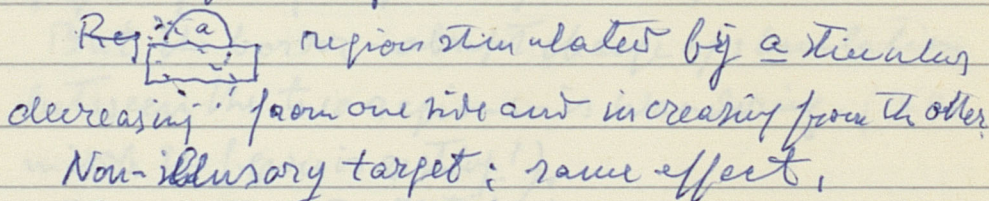 Reg: a region stimulated by a stimulus
decreasing from one side and increasing from the other.
Non-illusory target: same effect.